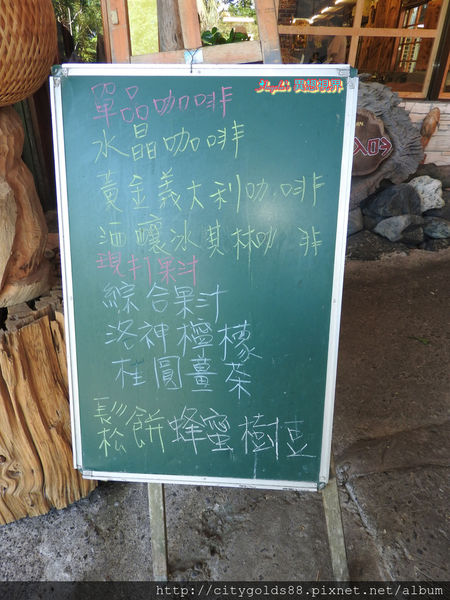 單品咖啡
水晶咖啡
黃金義大利咖啡
酒釀冰淇林咖啡
現打果汁
綜合果汁
洛神檸檬
桂圓薑茶
鬆餅蜂蜜樹豆
http://citygolds88.pixnet.net/album